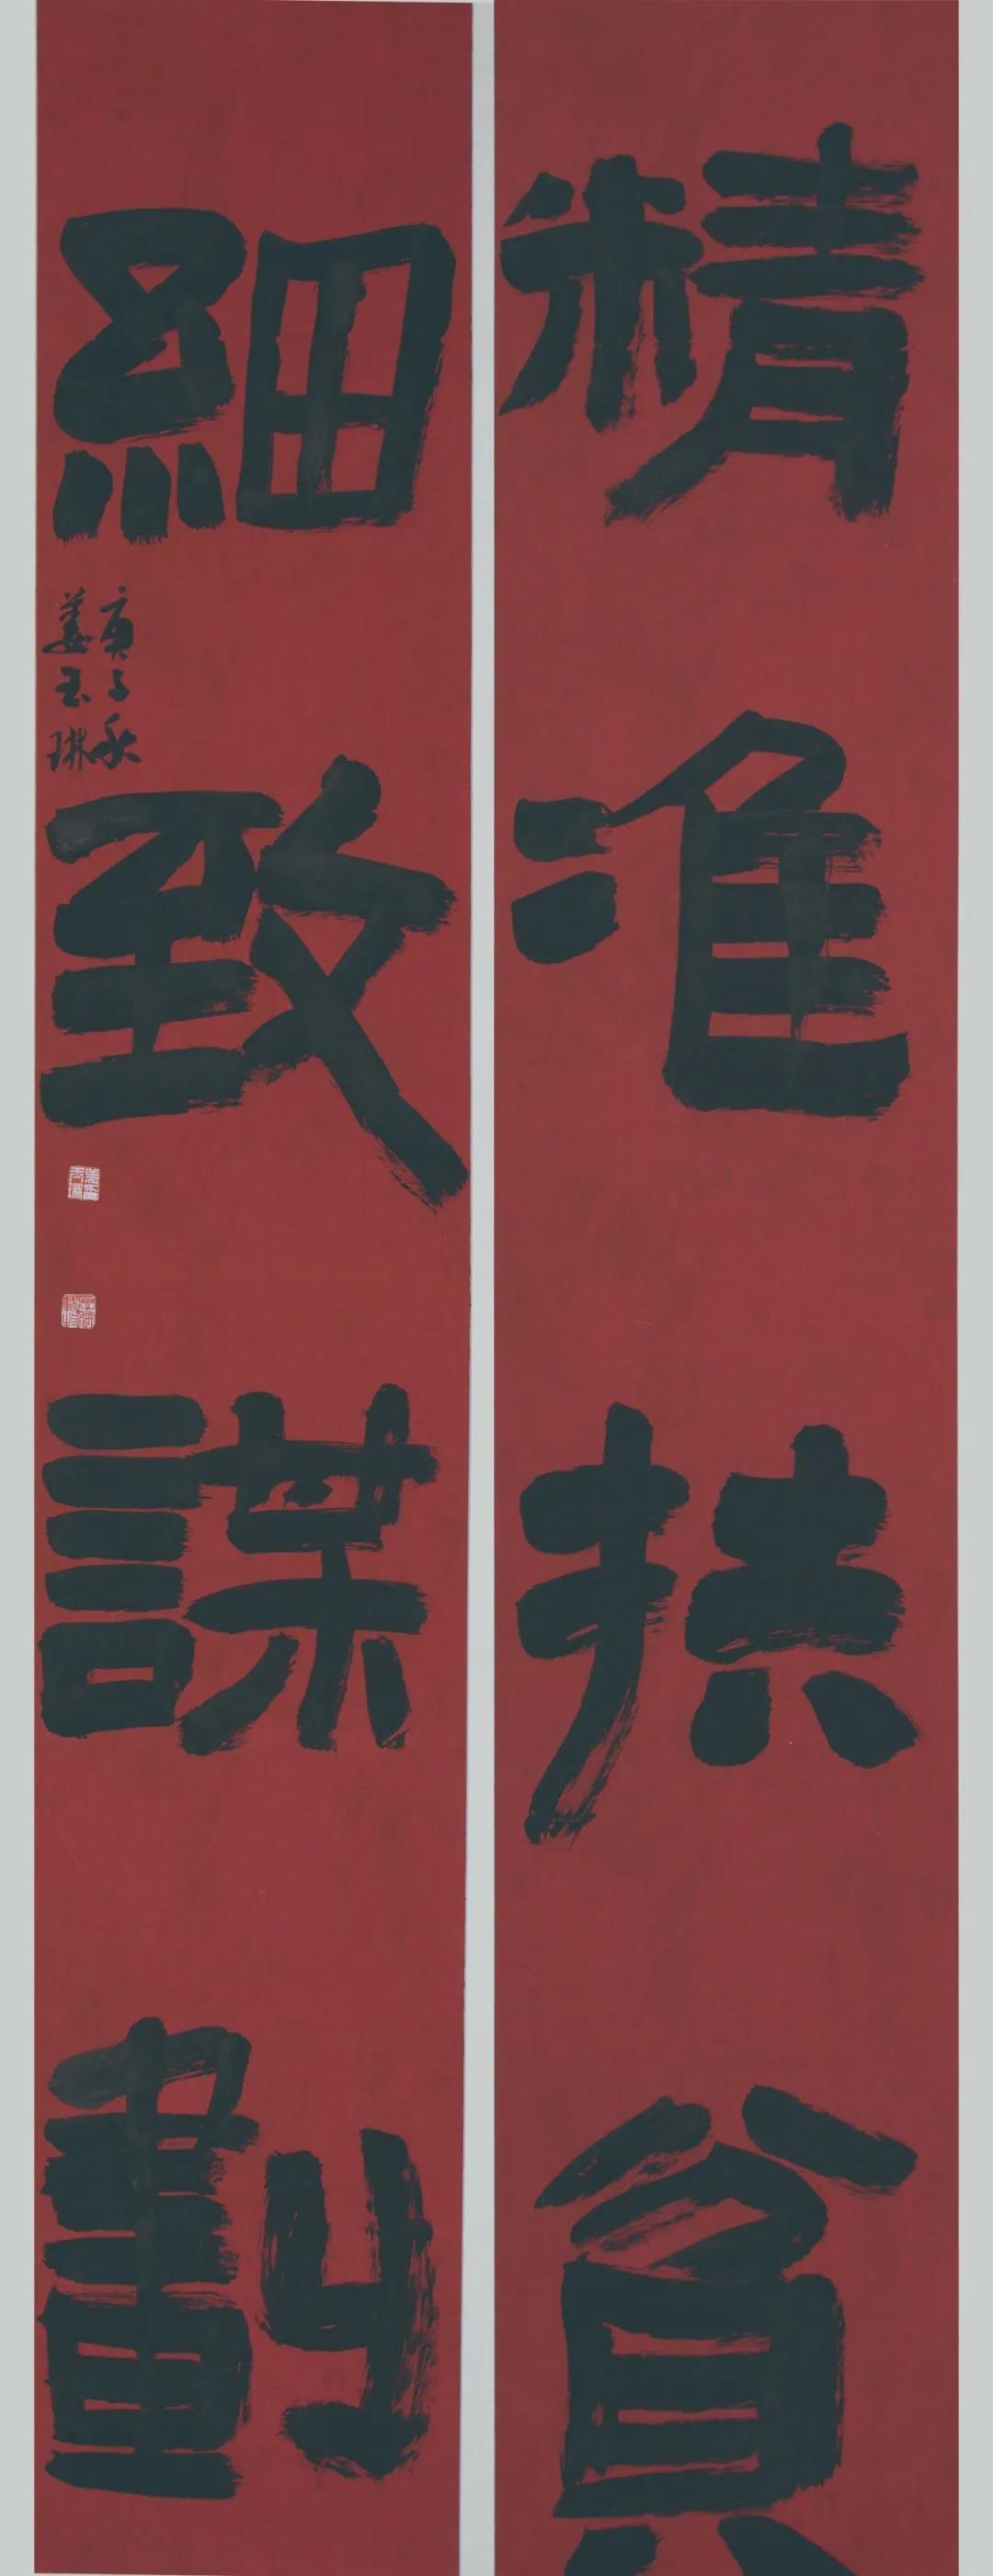 精准扶貧
細致謀劃
庚子秋
姜玉琳